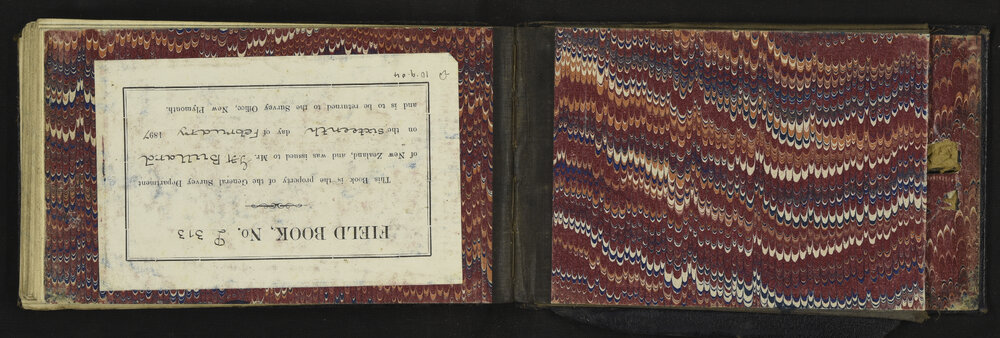 FIELD BOOK, No. L 313
This Book is the property of the General Survey Department
of New Zealand, and was issued to Mr. Bullard
on the sixteenth day of February 1897
and is to be returned to the Survey Office, New Plymouth.
10.9.04